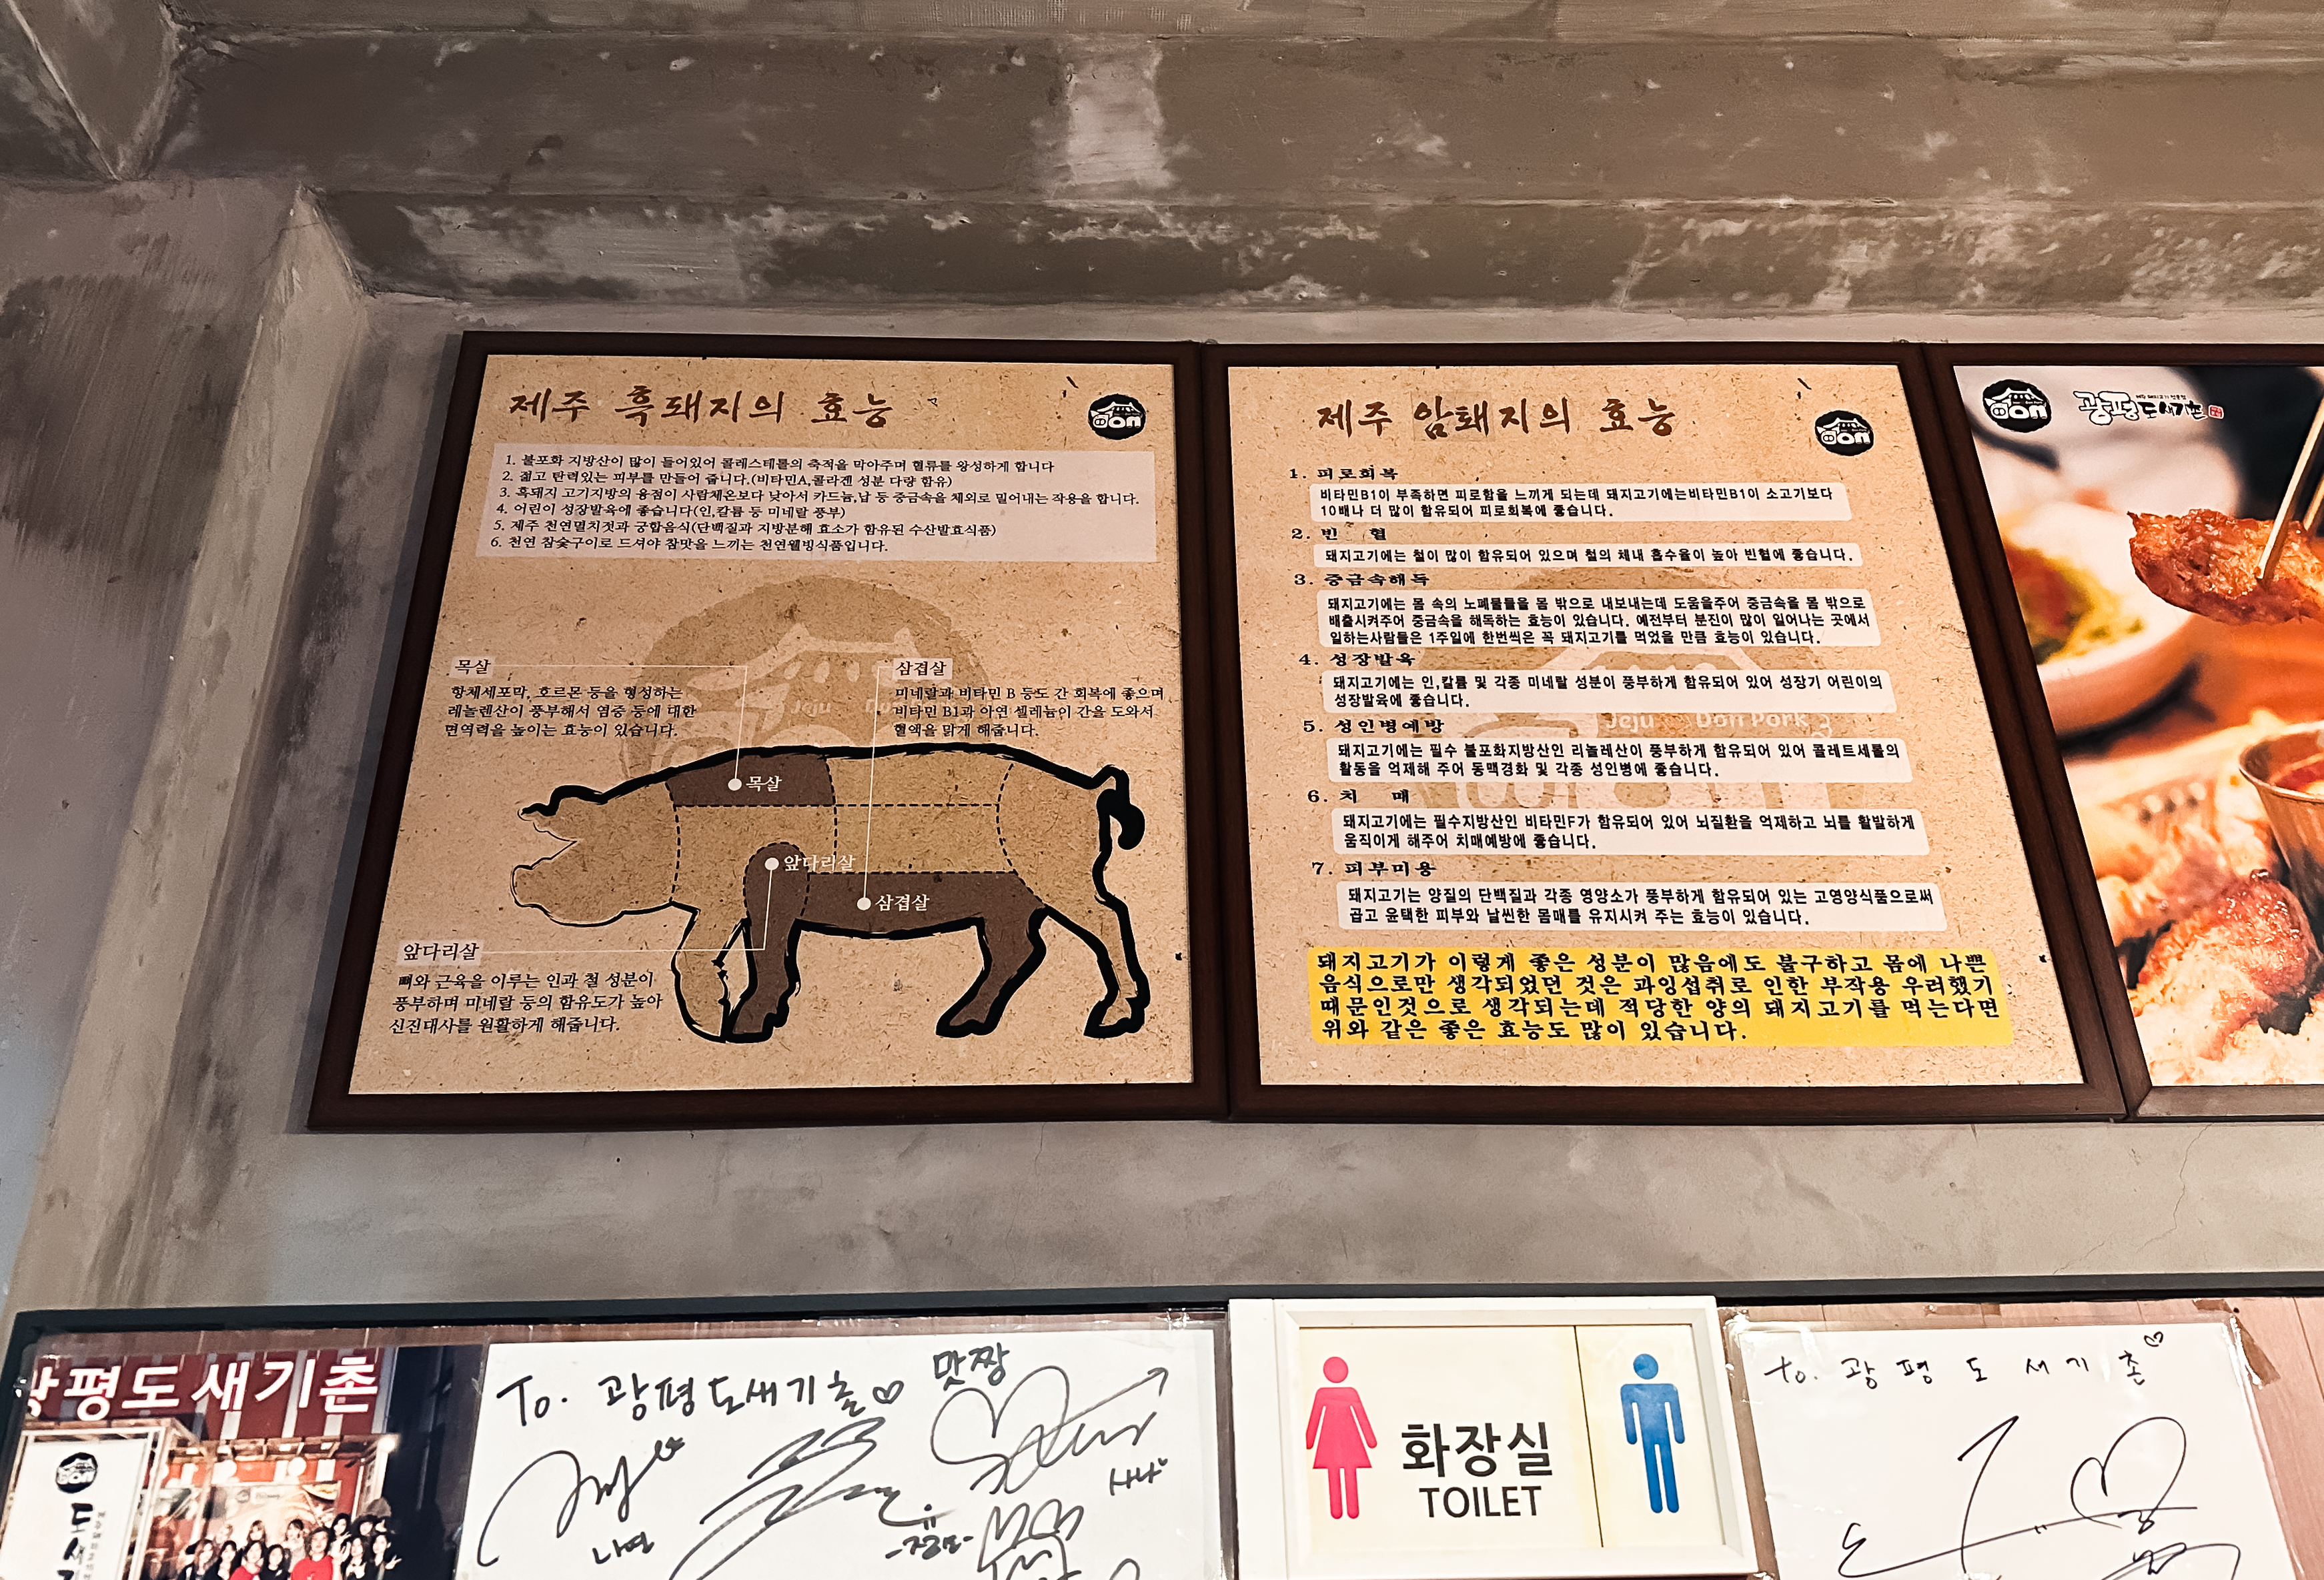 제주 흑돼지의 효능
1. 불포화 지방산이 많이 들어있어 콜레스테롤의 축적을 막아주며 혈류를 왕성하게 합니다
2. 젊고 탄력있는 피부를 만들어 줍니다.(비타민A,콜라겐 성분 다량 함유)
3. 흑돼지 고기지방의 융점이 사람체온보다 낮아서 카드늄,납 등 중금속을 체외로 밀어내는 작용을 합니다.
4. 어린이 성장발육에 좋습니다(인,칼륨 등 미네랄 풍부)
5. 제주 천연멸치젓과 궁합음식(단백질과 지방분해 효소가 함유된 수산발효식품)
6. 천연 참숯구이로 드셔야 참맛을 느끼는 천연웰빙식품입니다.
목살
항체세포막, 호르몬 등을 형성하는
레놀렌산이 풍부해서 염증 등에 대한
면역력을 높이는 효능이 있습니다.
삼겹살
미네랄과 비타민 B 등도 간 회복에 좋으며
비타민 B1과 아연 셀레늄이 간을 도와서
혈액을 맑게 해줍니다.
목살
앞다리살
삼겹살
앞다리살
뼈와 근육을 이루는 인과 철 성분이
풍부하며 미네랄 등의 함유도가 높아
신진대사를 원활하게 해줍니다.
제주 암퇘지의 효능
1. 피로회복
비타민B1이 부족하면 피로함을 느끼게 되는데 돼지고기에는비타민B1이 소고기보다
10배나 더 많이 함유되어 피로회복에 좋습니다.
2. 빈 혈
돼지고기에는 철이 많이 함유되어 있으며 철의 체내 흡수율이 높아 빈혈에 좋습니다.
3. 중금속해독
돼지고기에는 몸 속의 노폐물들을 몸 밖으로 내보내는데 도움을주어 중금속을 몸 밖으로
배출시켜주어 중금속을 해독하는 효능이 있습니다. 예전부터 분진이 많이 일어나는 곳에서
일하는사람들은 1주일에 한번씩은 꼭 돼지고기를 먹었을 만큼 효능이 있습니다.
4. 성장발육
돼지고기에는 인,칼륨 및 각종 미네랄 성분이 풍부하게 함유되어 있어 성장기 어린이의
성장발육에 좋습니다.
Jeju Don Pork
5. 성인병예방
돼지고기에는 필수 불포화지방산인 리놀레산이 풍부하게 함유되어 있어 콜레트세롤의
활동을 억제해 주어 동맥경화 및 각종 성인병에 좋습니다.
6. 치 매
돼지고기에는 필수지방산인 비타민F가 함유되어 있어 뇌질환을 억제하고 뇌를 활발하게
움직이게 해주어 치매예방에 좋습니다.
7. 피부미용
돼지고기는 양질의 단백질과 각종 영양소가 풍부하게 함유되어 있는 고영양식품으로써
곱고 윤택한 피부와 날씬한 몸매를 유지시켜 주는 효능이 있습니다.
돼지고기가 이렇게 좋은 성분이 많음에도 불구하고 몸에 나쁜
음식으로만 생각되었던 것은 과잉섭취로 인한 부작용 우려했기
때문인것으로 생각되는데 적당한 양의 돼지고기를 먹는다면
위와 같은 좋은 효능도 많이 있습니다.
광평도새기촌
광평도새기촌
To. 광평도새기촌♡
맛짱
나연
사나
화장실
TOILET
to. 광평도새기촌♡